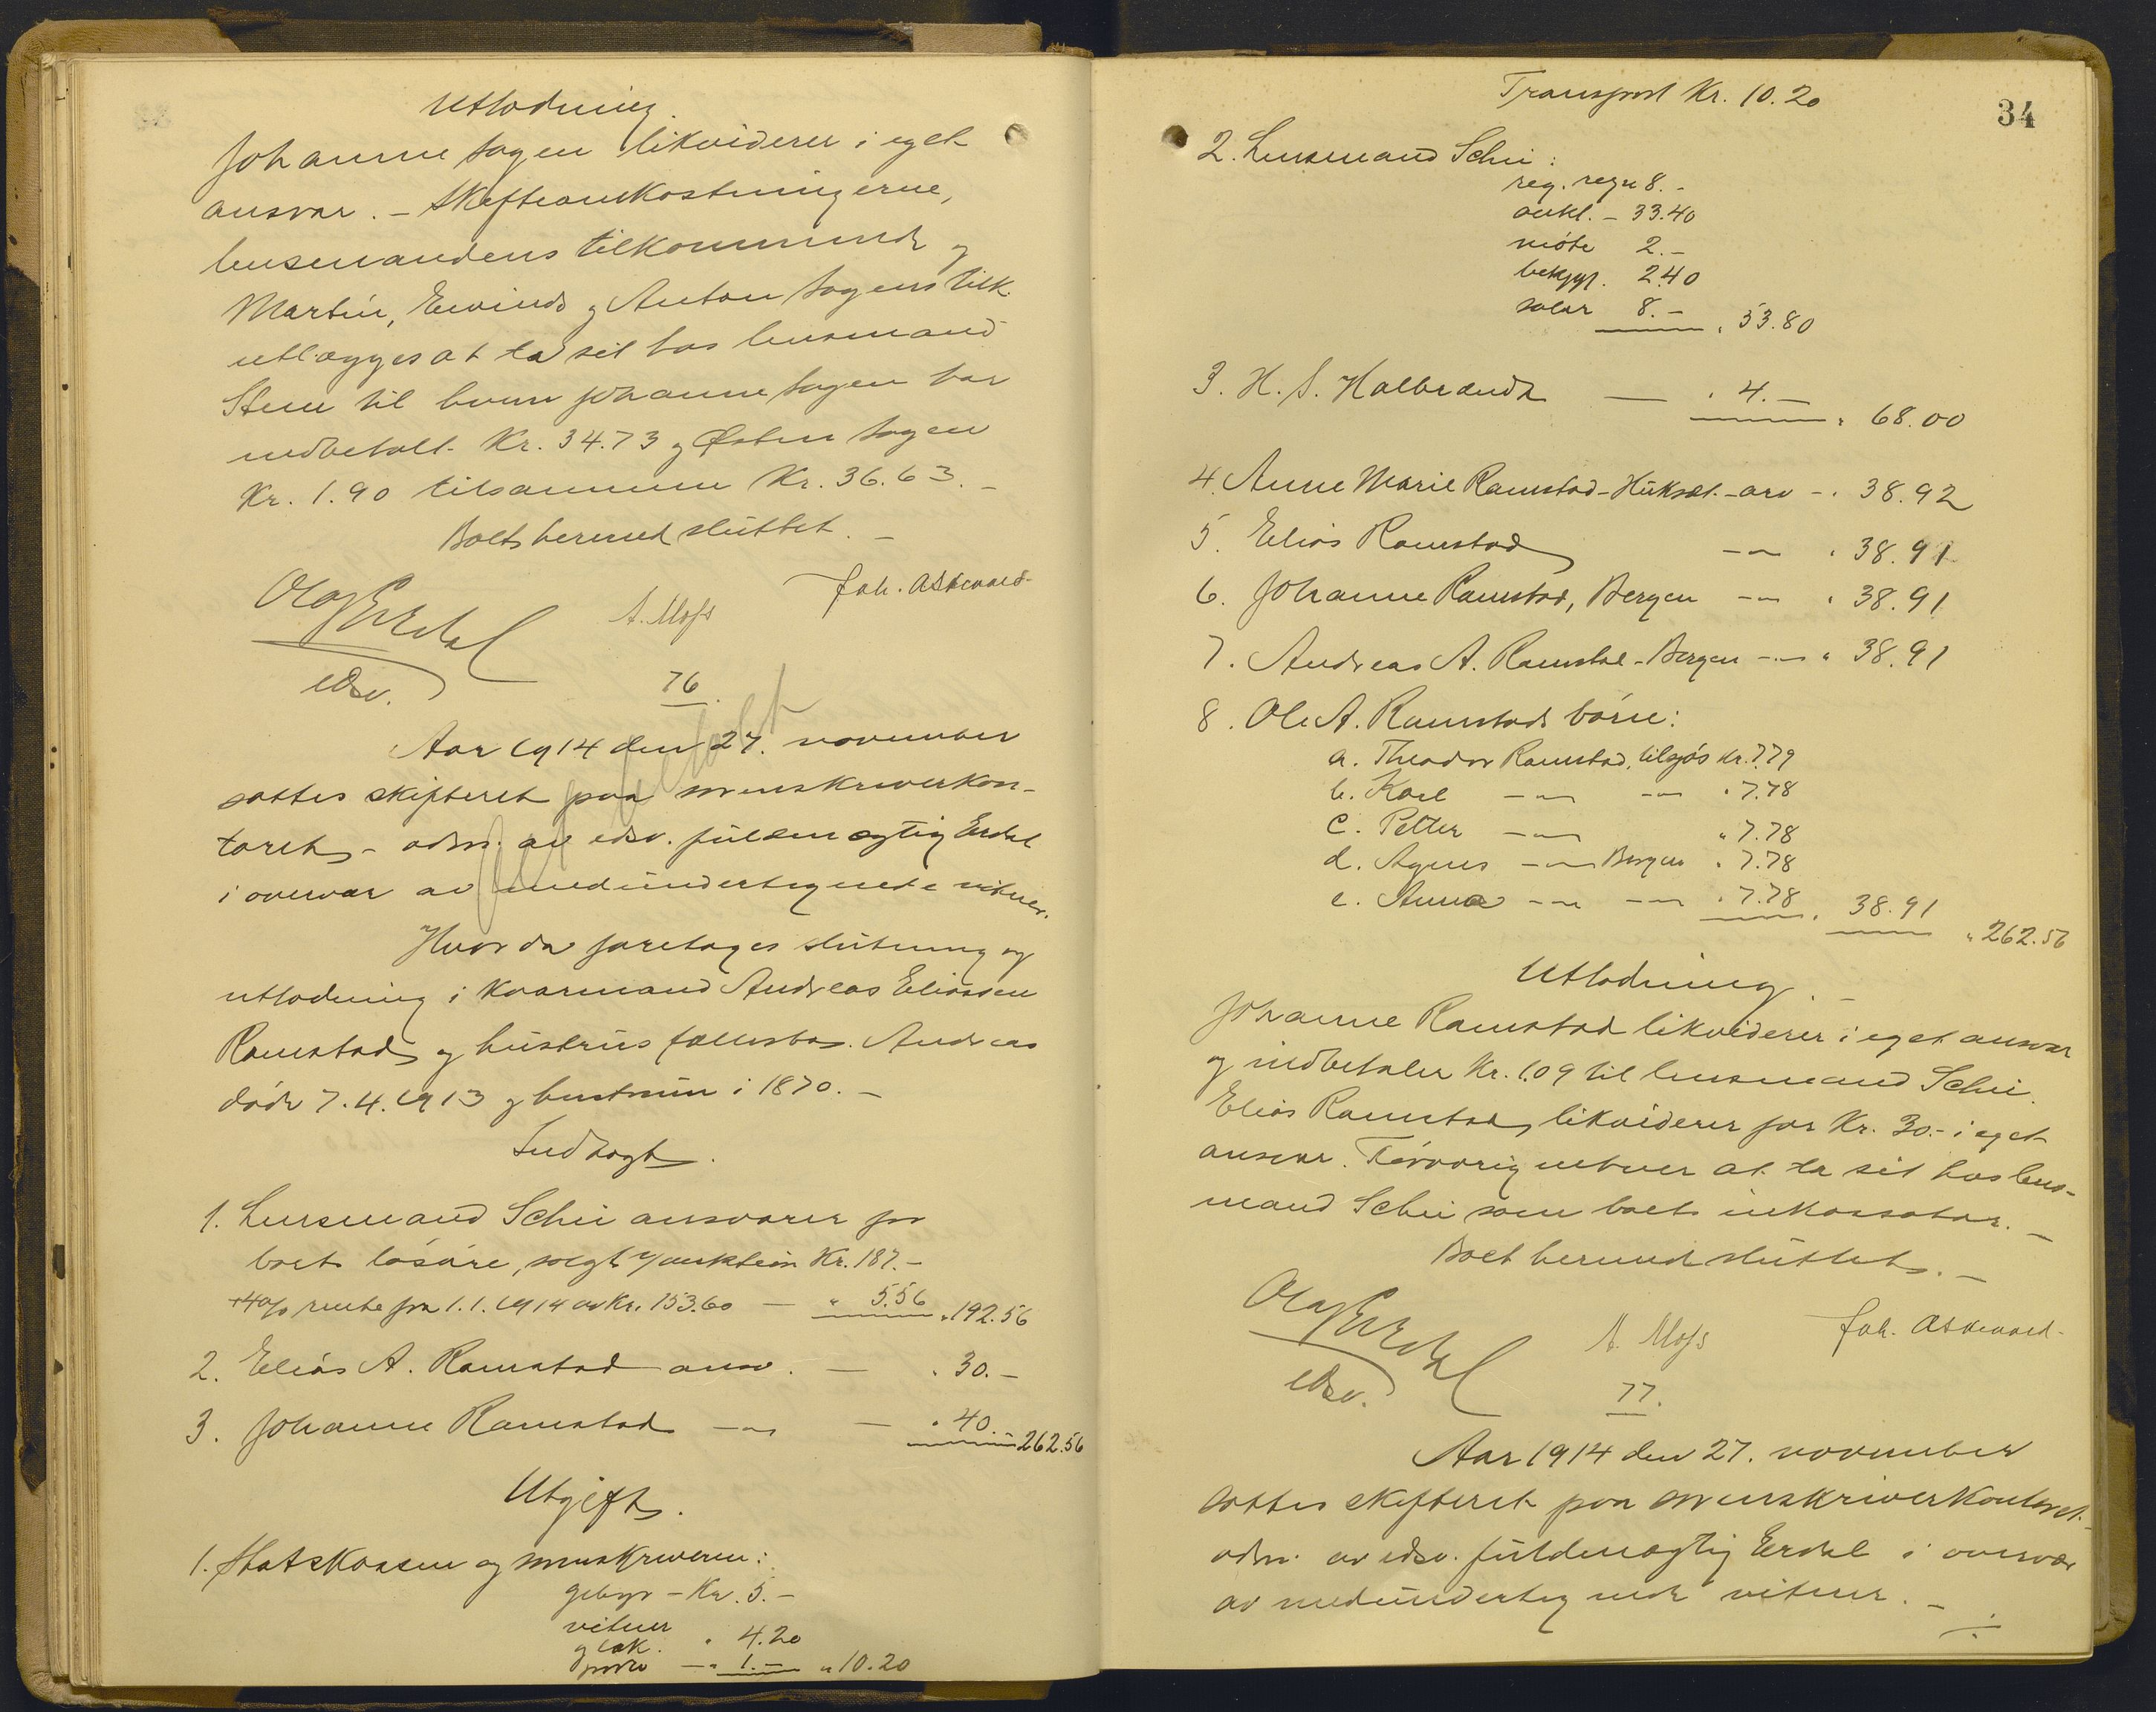 Utlodning.
Johanne Hagen likviderer i eget
ansvar. – Skifteomkostningerne,
lensmandens tilkommende og
Martin, Eivinds og Anton Hagens tilk.
utlægges at ta sit hos lensmand
til hvem Johanne Hagen har
indbetalt Kr. 34.73 og Østen Hagen
Kr. 1.90 tilsammen Kr. 36.63. –
Boets hermed sluttet. –
Olaf Erdal
edsv.
A. Moss
Joh. Askevold
76.
Aar 1914 den 27. november
sattes skifteret paa sorenskriverkon-
toret – adm. av edsv. fuldmægtig Erdal
i overvær av medundertegnede vitner.
Hvor da foretages slutning og
utlodning i kaarmand Andreas Eliassen
Ramstad og hustrus fællesbo. Andreas
døde 7.4.1913 og hustruen i 1870. –
Indtægt.
1. Lensmand Schei ansvarer for
boets løsøre, solgt v/auktion Kr. 187.–
+ 4% rente fra 1.1.1914 av Kr. 153.60 — " 5.56 " 192.56
2. Elias A. Ramstad ansv. — " 30.–
3. Johanne Ramstad —"— — " 40.– 262.56
Utgift.
1. Statskassen og sorenskriveren:
gebyr – Kr. 5.–
vitner
og lak. " 4.20
porto —" 1.— " 10.20
34
Transport Kr. 10.20
2. Lensmand Schei:
reg. regn 8.–
aukt. – 33.40
møte 2.–
2.40
salær 8.– " 53.80
3. H. S. Halbrændt — " 4.— " 68.00
4. Anne Marie Ramstad – – arv – " 38.92
5. Elias Ramstad —"— " 38.91
6. Johanne Ramstad, Bergen —"— " 38.91
7. Andreas A. Ramstad – Bergen —"— " 38.91
8. Ole A. Ramstads børn:
a. Theodor Ramstad, tilsjøs Kr. 7.79
b. Karl —"— —"— " 7.78
c. Petter —"— " 7.78
d. Agnes —"— Bergen " 7.78
e. Anna —"— —"— " 7.78 " 38.91
" 262.56
Utlodning. –
Johanne Ramstad likviderer i eget ansvar
og indbetaler Kr. 1.09 til lensmand Schei.
Elias Ramstad likviderer for Kr. 30.– i eget
ansvar. Forøvrig enhver at ta sit hos lens-
mand Schei som boets inkassator. –
Boet hermed sluttet. –
Olaf Erdal
edsv.
A. Moss
Joh. Askevold
77.
Aar 1914 den 27. november
sattes skifteret paa sorenskriverkontoret –
adm. av edsv. fuldmægtig Erdal i overvær
av medundertegnede vitner. –